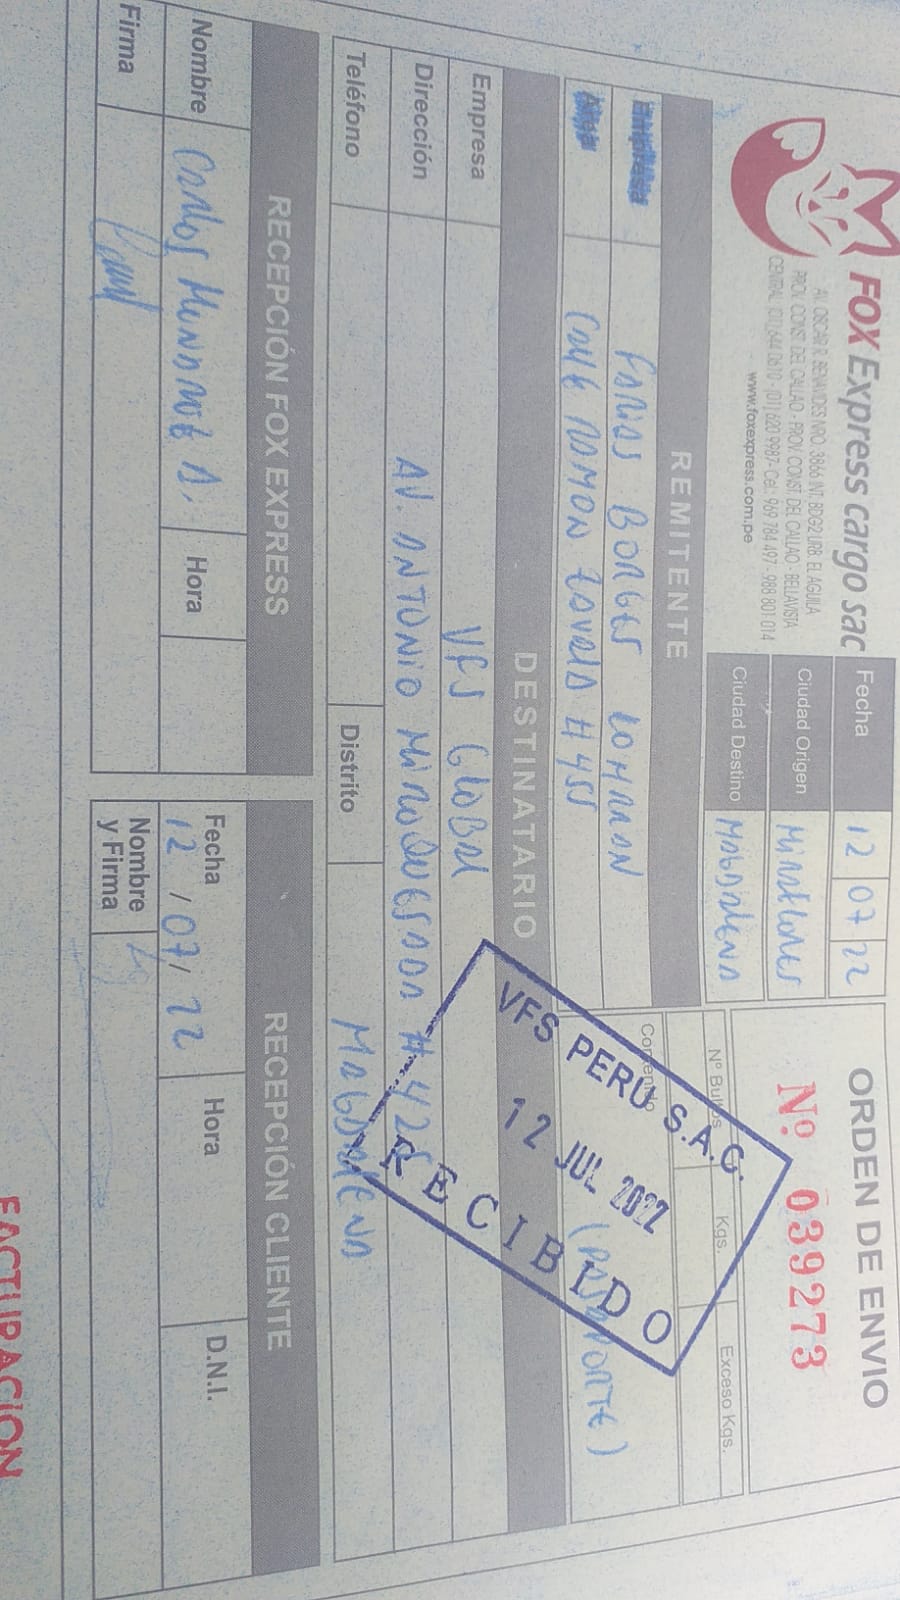 FOX Express cargo sac
AV. OSCAR R. BENAVIDES NRO. 3866 INT. BDG2 URB. EL AGUILA
PROV. CONST. DEL CALLAO - PROV. CONST. DEL CALLAO - BELLAVISTA
CENTRAL (01) 644 0610 - (01) 620 9987 - Cel.: 969 784 497 - 988 801 014
www.foxexpress.com.pe
Fecha 12 07 22
Ciudad Origen MIRAFLORES
Ciudad Destino MAGDALENA
ORDEN DE ENVIO
Nº 039273
REMITENTE
Nº Bultos Kgs. Exceso Kgs.
FARIAS BORGES
Contenido
CALLE RAMON ZAVALA # 455
(PASAPORTE)
DESTINATARIO
Empresa VFS GLOBAL
Dirección AV. ANTONIO MIROQUESADA # 425
Teléfono Distrito MAGDALENA
VFS PERU S.A.C.
12 JUL 2022
RECIBIDO
RECEPCIÓN FOX EXPRESS
Nombre CARLOS Hora
Firma
RECEPCIÓN CLIENTE
Fecha 12/07/22 Hora D.N.I.
Nombre
y Firma
FACTURACION